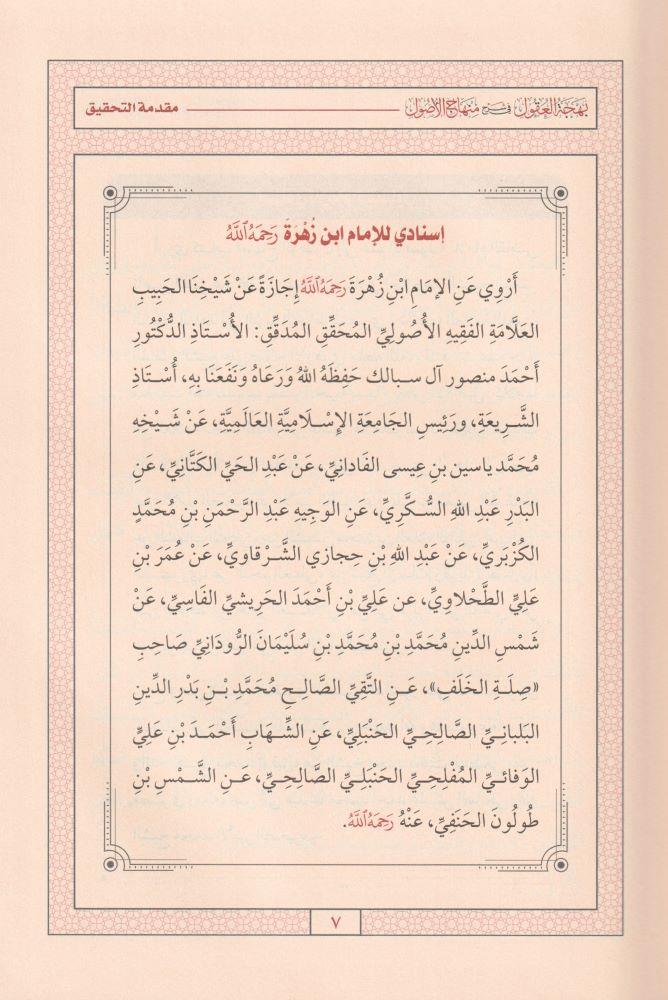 بَهْجَةُ العُقُولِ فِي شَرْحِ مِنْهَاجِ الأُصُولِ
مقدمة التحقيق
إسنادي للإمام ابن زُهْرَةَ رَحِمَهُ ٱللَّهُ
أَرْوِي عَنِ الإمَامِ ابْنِ زُهْرَةَ رَحِمَهُ ٱللَّهُ إجَازَةً عَنْ شَيْخِنَا الحَبِيبِ
العَلَّامَة الفَقِيهِ الأُصُولِيِّ المُحَقِّقِ المُدَقِّقِ: الأُسْتَاذِ الدُّكْتُورِ
أَحْمَدَ منصور آل سبالك حَفِظَهُ اللهُ وَرَعَاهُ وَنَفَعَنَا بِهِ، أُسْتَاذِ
الشَّرِيعَةِ، ورَئِيسِ الجَامِعَةِ الإِسْلَامِيَّةِ العَالَمِيَّةِ، عَنْ شَيْخِهِ
مُحَمَّد ياسين بنِ عِيسى الفَادَانِيِّ، عَنْ عَبْدِ الحَيِّ الكَتَّانِيِّ، عَنِ
البَدْرِ عَبْدِ اللهِ السُّكَّرِيِّ، عَنِ الوَجِيهِ عَبْدِ الرَّحْمَنِ بْنِ مُحَمَّدٍ
الكُزْبَرِيِّ، عَنْ عَبْدِ اللهِ بْنِ حِجازي الشَّرْقاوِيِّ، عَنْ عُمَرَ بْنِ
عَلِيٍّ الطَّحْلاوِيِّ، عن عَلِيِّ بْنِ أَحْمَدَ الحَرِيشِيِّ الفَاسِيِّ، عَنْ
شَمْسِ الدِّينِ مُحَمَّدِ بْنِ مُحَمَّدِ بْنِ سُلَيْمَانَ الرُّودَانِيِّ صَاحِبِ
«صِلَةِ الخَلَفِ»، عَنِ التَّقِيِّ الصَّالِحِ مُحَمَّدِ بْنِ بَدْرِ الدِّينِ
البَلبانِيِّ الصَّالِحِيِّ الحَنْبَلِيِّ، عَنِ الشِّهَابِ أَحْمَدَ بْنِ عَلِيٍّ
الوَفائِيِّ المُفْلِحِيِّ الحَنْبَلِيِّ الصَّالِحِيِّ، عَنِ الشَّمْسِ بْنِ
طُولُونَ الحَنَفِيِّ، عَنْهُ رَحِمَهُ ٱللَّهُ.
٧